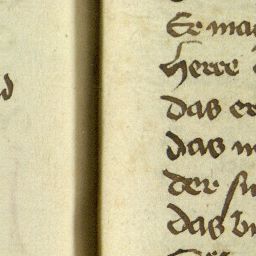 Er mag
herre
das er
das m
der su
das bu